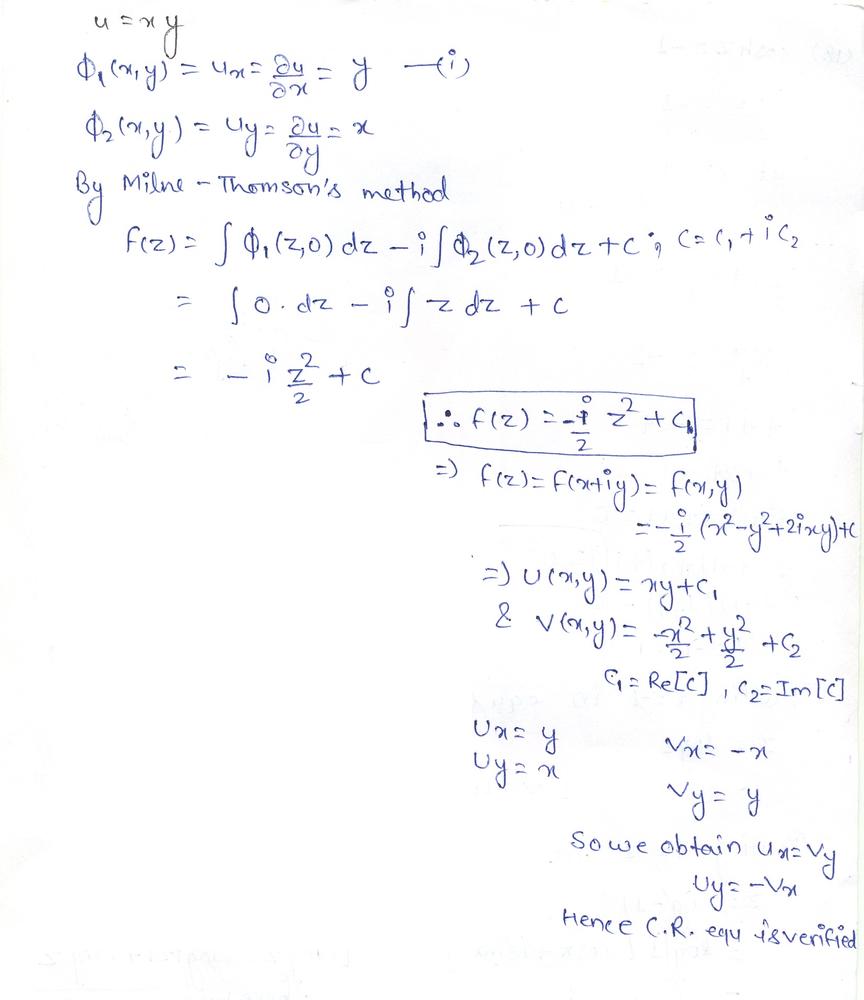 u = xy
ϕ₁(x,y) = uₓ = ∂u/∂x = y —(i)
ϕ₂(x,y) = u_y = ∂u/∂y = x
By Milne - Thomson's method
f(z) = ∫ ϕ₁(z,0) dz - i ∫ ϕ₂(z,0) dz + c ; c = c₁ + i c₂
= ∫ 0. dz - i ∫ z dz + c
= - i z²/2 + c
∴ f(z) = -i/2 z² + c
=) f(z) = f(x+iy) = f(x,y)
= -i/2 (x²-y²+2ixy)+c
=) u(x,y) = xy + c₁
& v(x,y) = -x²/2 + y²/2 + c₂
c₁ = Re[c] , c₂ = Im[c]
uₓ = y vₓ = -x
u_y = x
v_y = y
So we obtain uₓ = v_y
u_y = -vₓ
Hence C.R. equ is verified